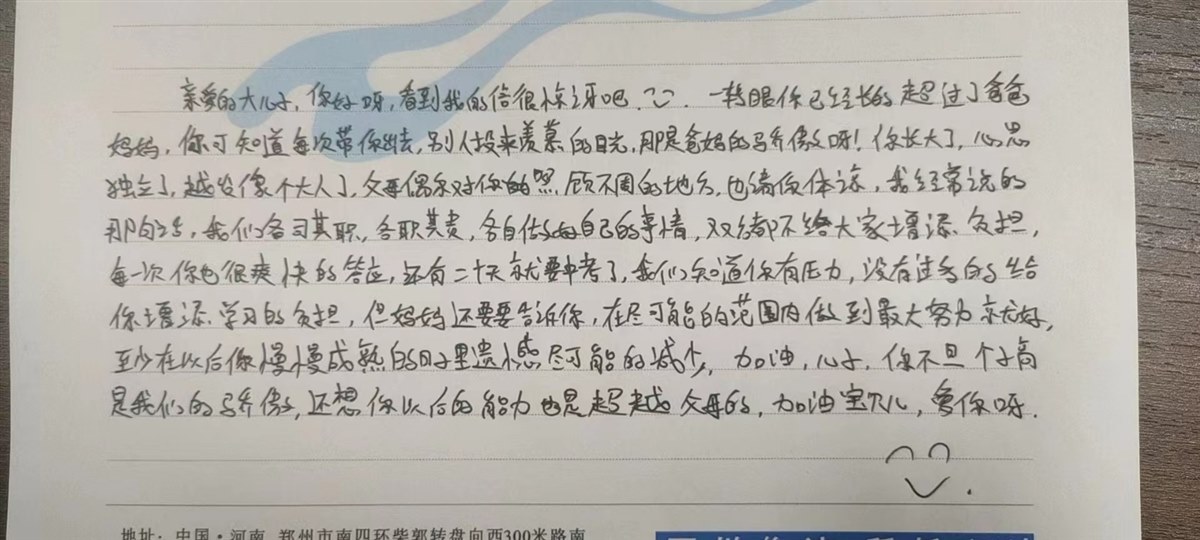 亲爱的大儿子，你好呀，看到我的信很惊讶吧。一转眼你已经长的超过了爸爸
妈妈，你可知道每次带你出去，别人投来羡慕的目光，那是爸妈的骄傲呀！你长大了，心思
独立了，越发像个大人了，父母偶尔对你的照顾不周的地方，也请你体谅，我经常说的
那句话，我们各司其职，各职其责，各自做好自己的事情，双方都不给大家增添负担，
每一次你也很爽快的答应，还有二十天就要中考了，我们知道你有压力，没有过多的给
你增添学习的负担，但妈妈还要要告诉你，在尽可能的范围内做到最大努力就好，
至少在以后你慢慢成熟的日子里遗憾尽可能的减少，加油，儿子，你不旦个子高
是我们的骄傲，还想你以后的能力也是超越父母的，加油宝贝儿，爱你呀.
地址：中国·河南 郑州市南四环柴郭转盘向西300米路南